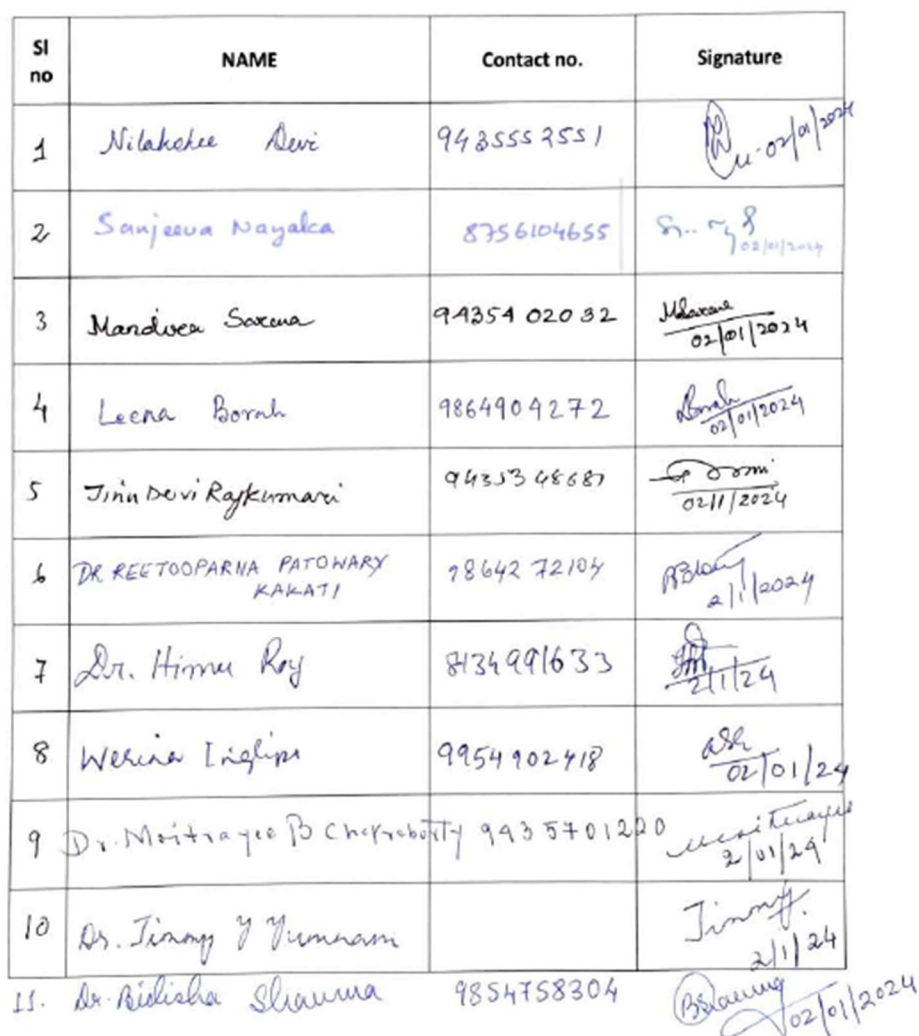 Sl no NAME Contact no. Signature
1 Nilakshee Devi 9435552551 02/01/2024
2 Sanjeeva Nayaka 8756104655 02/01/2024
3 Mandvee Saxena 94354 02032 MSaxena
02/01/2024
4 Leena Borah 9864904272 LBorah
02/01/2024
5 Jinu Devi Rajkumari 02/1/2024
6 DR REETOOPARNA PATOWARY
KAKATI 98642 72104
2/1/2024
7 Dr. Himu Roy 8134991633
2/1/24
8 9954902418
02/01/24
9 Dr. Moitrayee B Chakraborty 9435701220 Moitrayee
2/01/24
10 Dr. Jimmy Y Yumnam Jimmy
2/1/24
11. Dr. Bidisha Sharma 9854758304 BSharma
02/01/2024